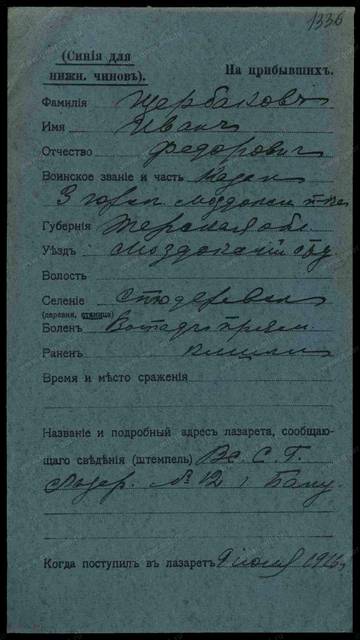 1336
(Синія для
нижн. чиновъ).
На прибывшихъ.
Фамилія Щербаковъ
Имя Иванъ
Отчество Федоровичъ
Воинское званіе и часть Казак
3 Моздокск
Губернія Терская обл
Уѣздъ Моздокскій
Волость
Селеніе
(деревня, станица)
Боленъ
Раненъ
Время и мѣсто сраженія
Названіе и подробный адресъ лазарета, сообщаю-
щаго свѣдѣнія (штемпель) Вс. С. Г.
№ 12 г Баку.
Когда поступилъ въ лазаретъ 9 1916